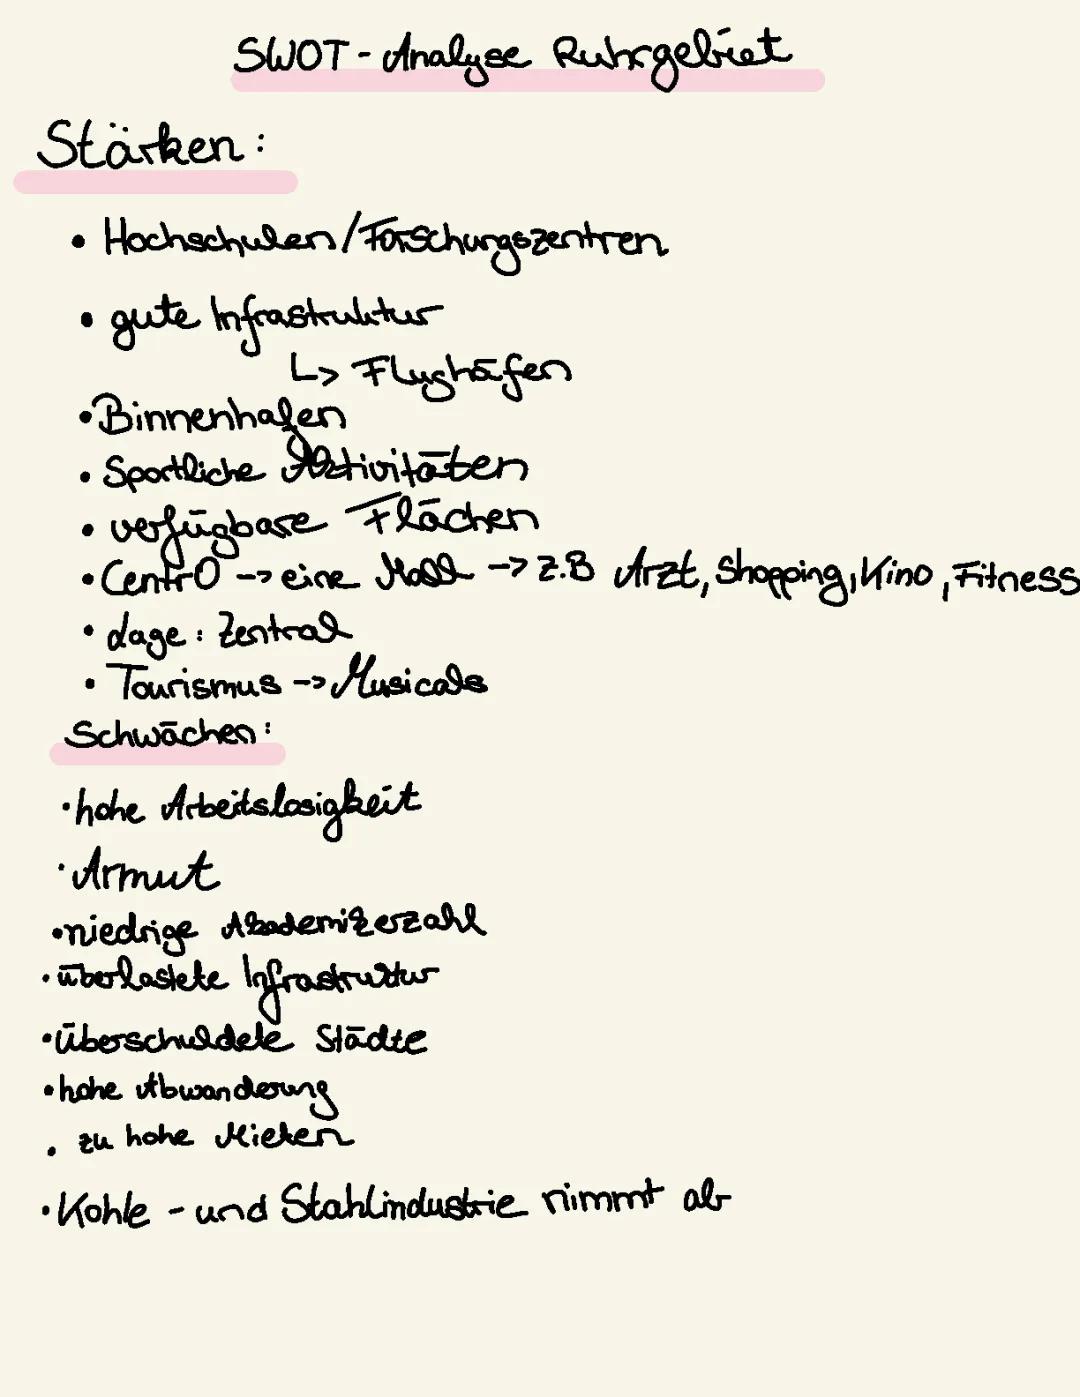 SWOT-Analyse Ruhrgebiet
Stärken:
• Hochschulen/Forschungszentren
• gute Infrastruktur
↳ Flughäfen
• Binnenhafen
• Sportliche Aktivitäten
• verfügbare Flächen
• CentrO -> eine Mall -> z.B Arzt, Shopping, Kino, Fitness
• Lage: Zentral
• Tourismus -> Musicals
Schwächen:
• hohe Arbeitslosigkeit
• Armut
• niedrige Akademikerzahl
• überlastete Infrastruktur
• überschuldete Städte
• hohe Abwanderung
• zu hohe Mieten
• Kohle - und Stahlindustrie nimmt ab